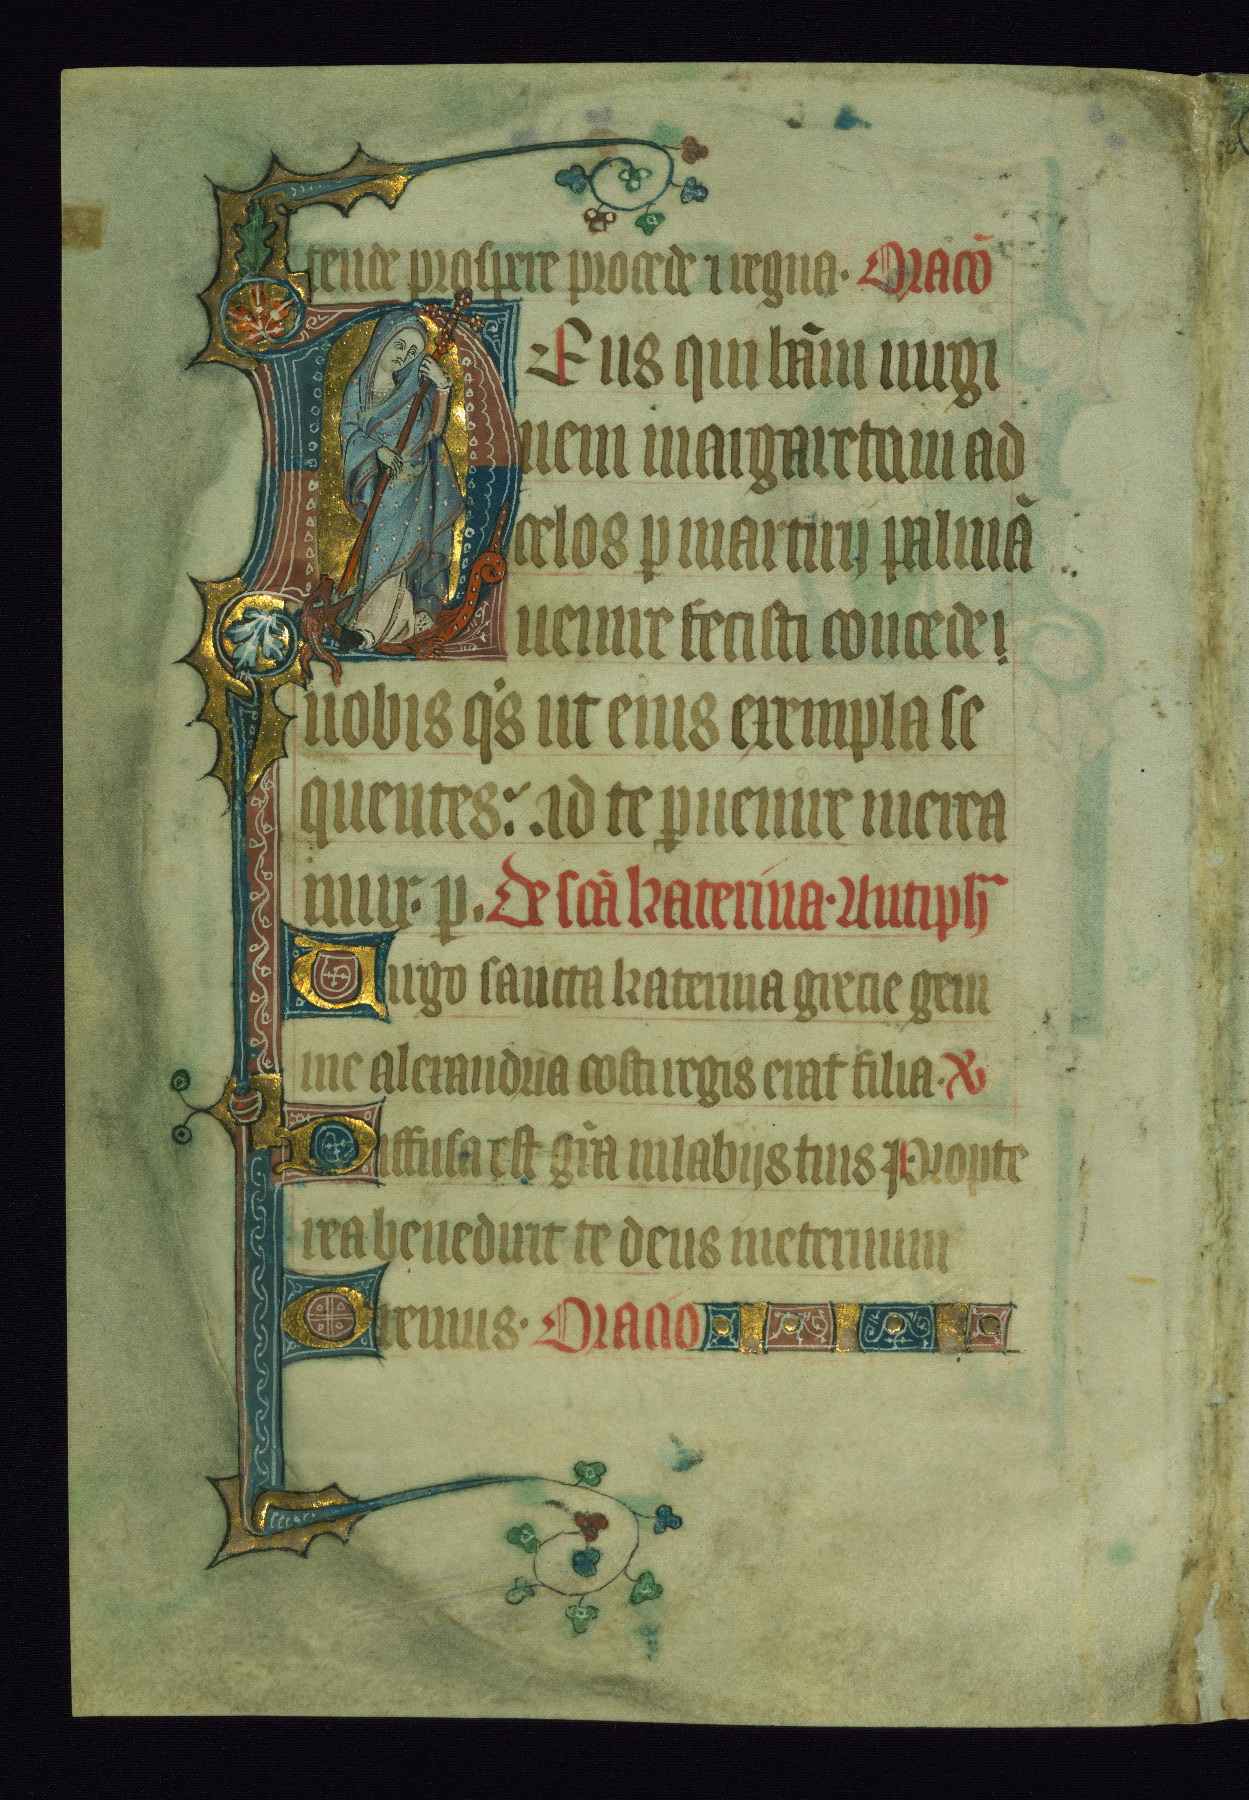 tende prospere procede ⁊ regna. Oracō
Deus qui bt̄am uirgi
nem margaretam ad
celos p martirij palmā
uenire fecisti concede
nobis q̄s ut eius exempla se
quentes. Ad te puenire merea
mur. p. De sc̄a katerina. Antiph̄
Uirgo sancta katerina grecie gem
me alexandria costi regis erat filia. V
Diffusa est gr̄a in labijs tuis Propte
rea benedixit te deus in eternum
Oremus. Oracio